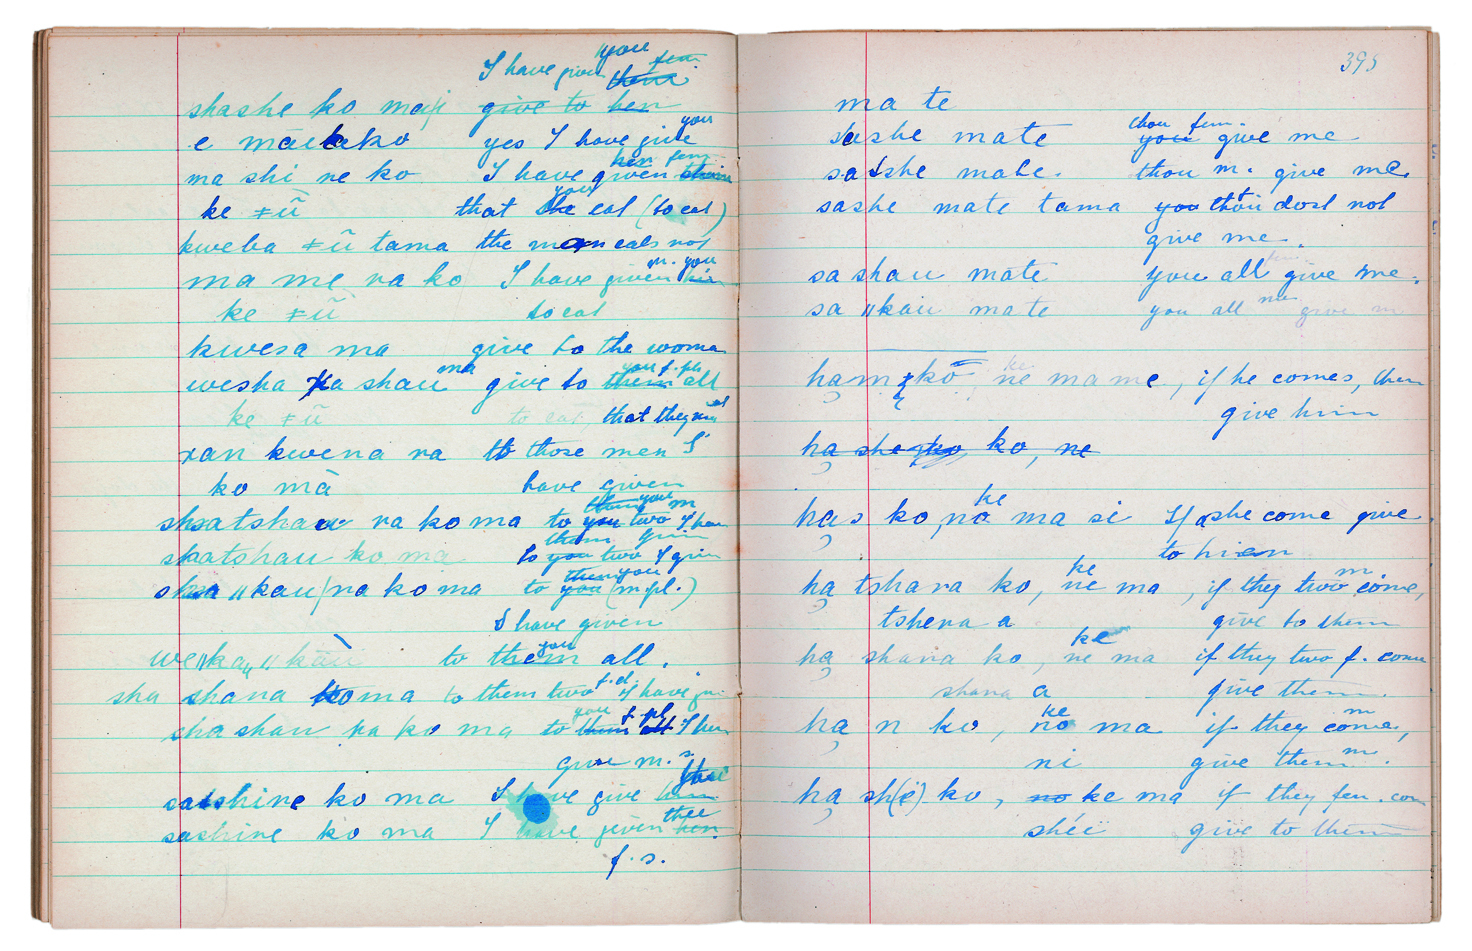 I have given you fem
them
shashe ko ma give to her
e ma ko yes I have give you
her fem
ma shi ne ko I have given
you
ke ǂũ that she eat (to eat)
kweba ǂũ tama the man eats not
m. you
ma me ra ko I have given him
ke ǂũ to eat
kwesa ma give to the woman
ma you f. pl.
wesha ka shau give to them all
ke ǂũ to eat, that they
xan kwena ra to those men I
ko mà have given
them you m
shatshau ra ko ma to you two I hav
them given
skatshau ko ma to you two I given
them you
sha ǁkau/ra ko ma to you (m. pl.)
I have given
you
weǁkaǁkàu to them all.
sha shana ko ma to them two f.d. I have
you f. pl.
sha shau ra ko ma to them all I have
give m. s.
thee
satshine ko ma I have give him
thee
sashine ko ma I have given her.
f. s.
395
ma te
thou fem.
sashe mate you give me
satshe mate. thou m. give me.
sashe mate tama you thou dost not
give me.
fem
sa shau mate you all give me.
sa ǁkau mate you all give m
ke
ham ko ne ma me, if he comes, then
give him
ha she ko, ne
ke
has ko, no ma si If she come give
to her
ke m
ha tshara ko, ne ma, if they two come,
tshera a give to them
ke
ha shara ko, ne ma if they two f. come
shara a give them
ke m
ha n ko, no ma if they come,
ni give them m.
ha sh(i) ko, no ke ma if they fem. com
shéi give to them